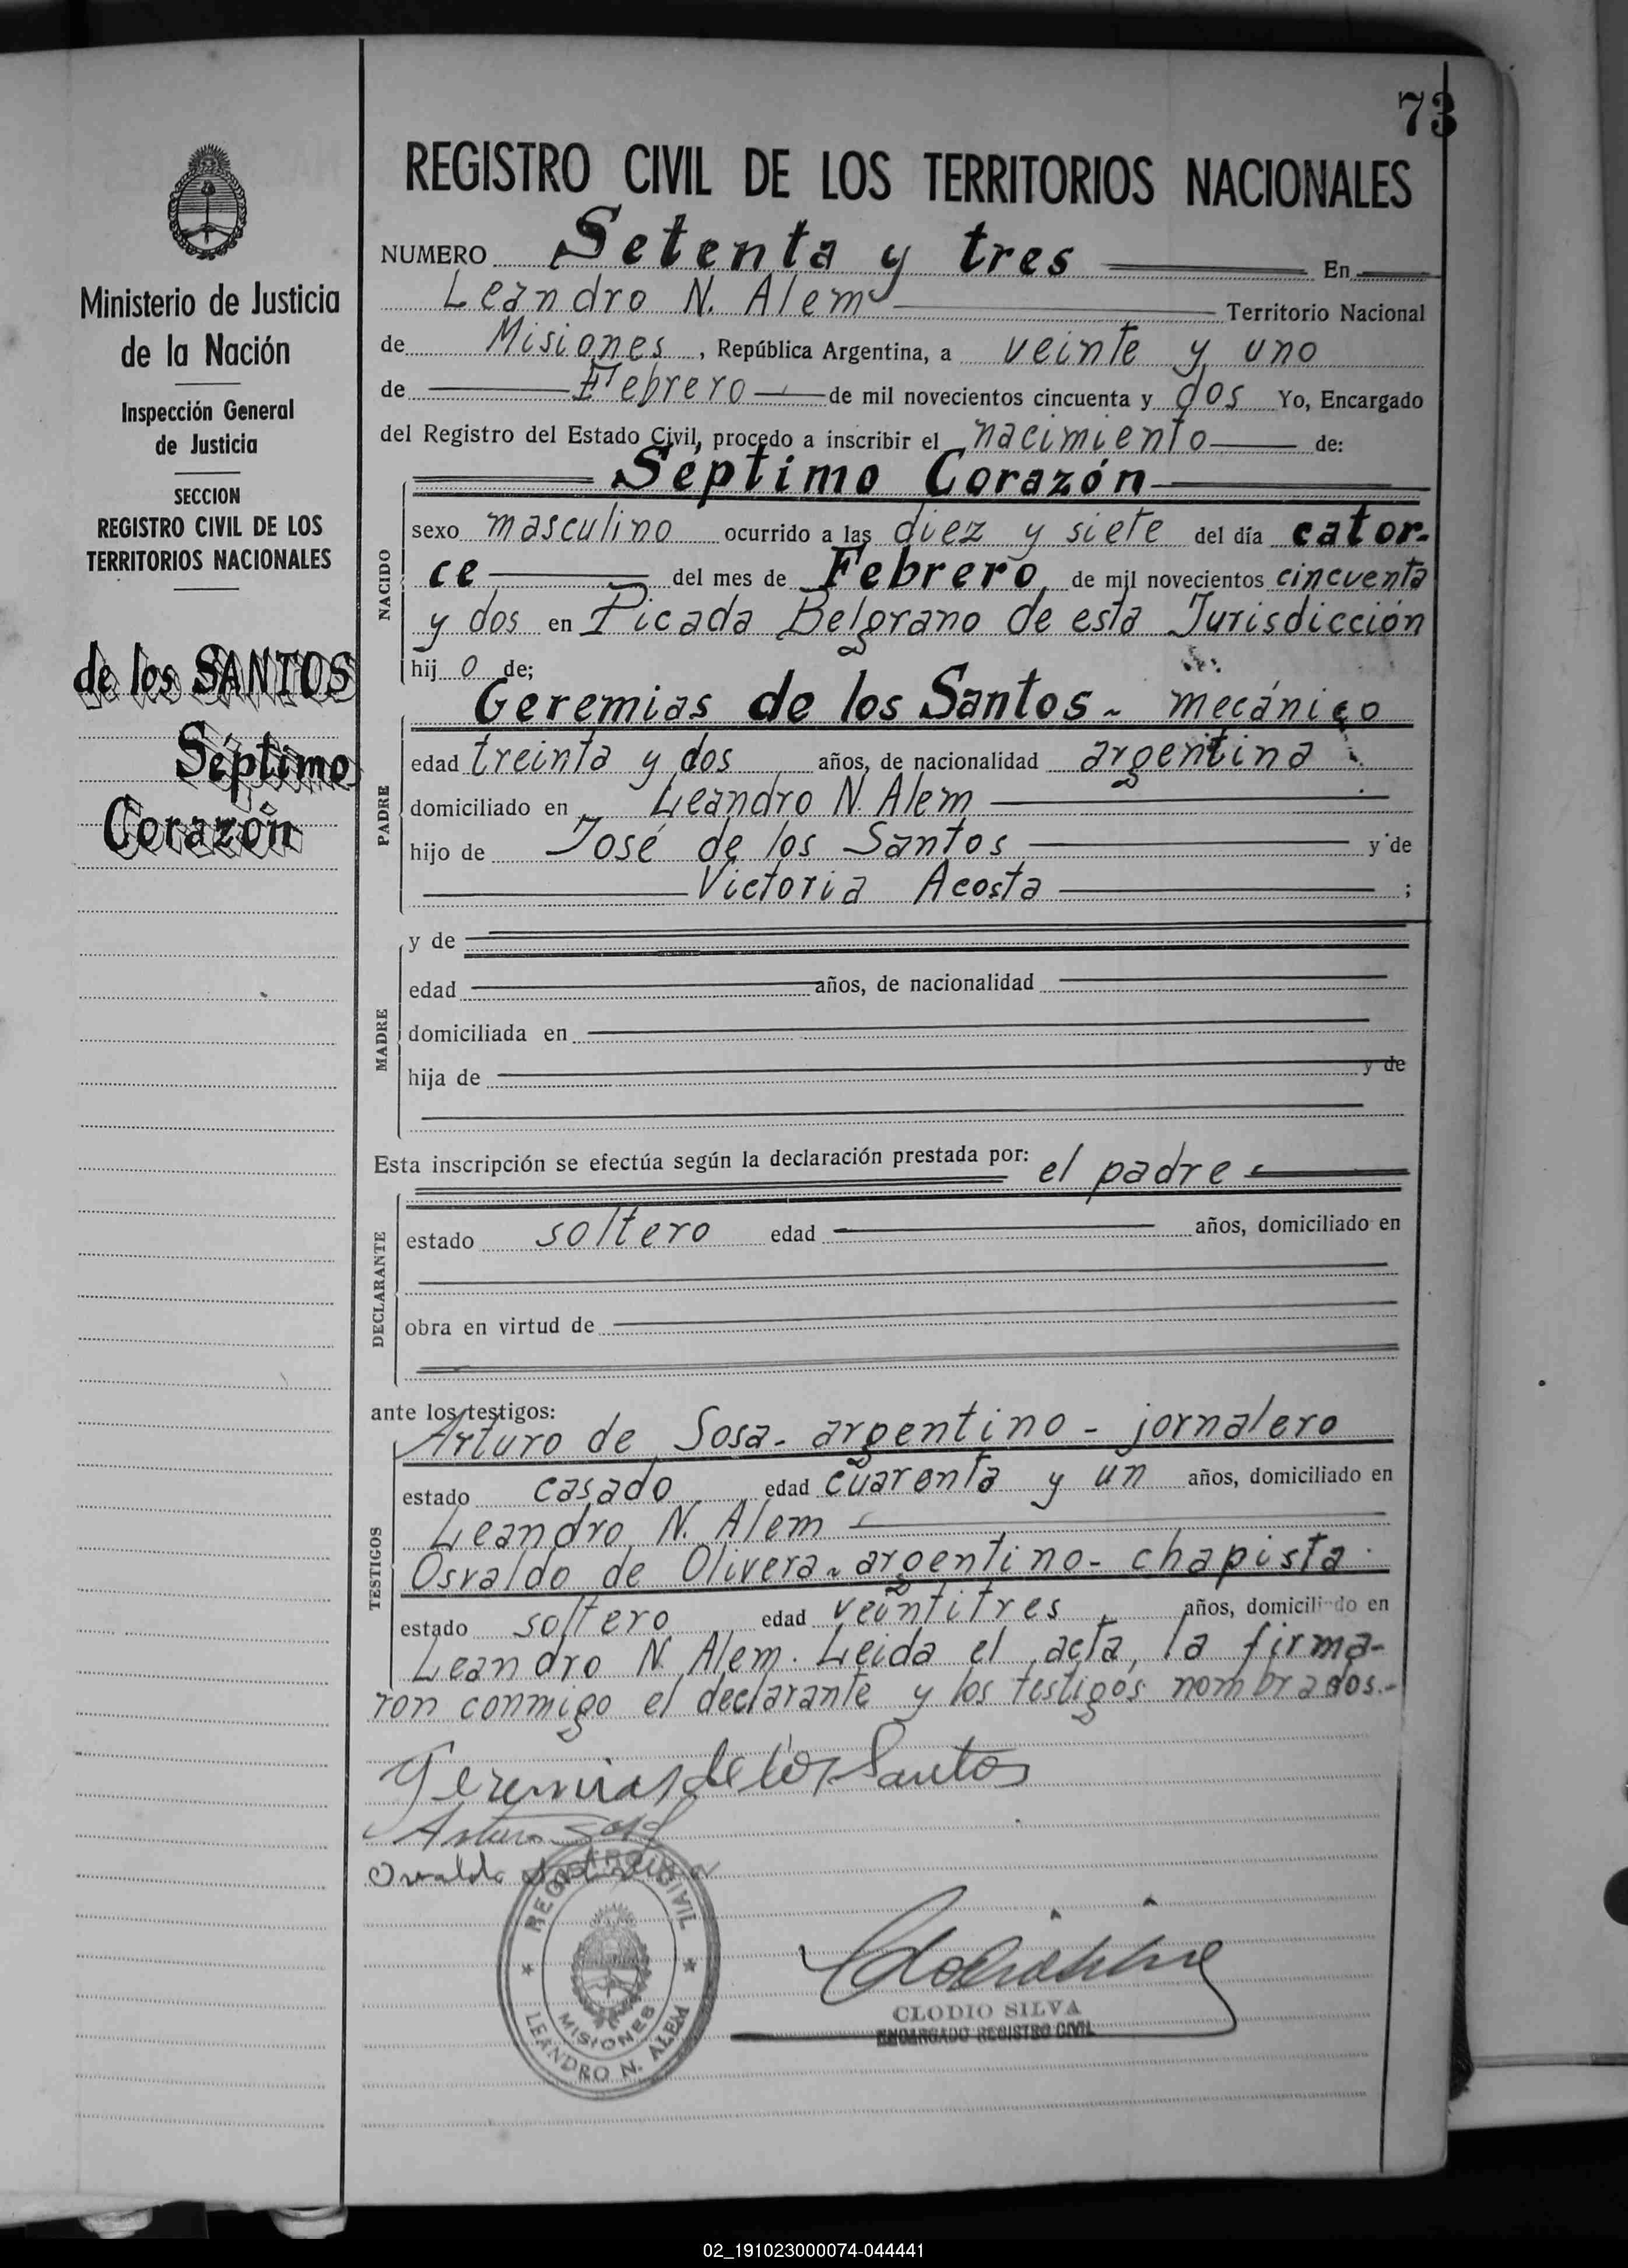 73
REGISTRO CIVIL DE LOS TERRITORIOS NACIONALES
Ministerio de Justicia
de la Nación
Inspección General
de Justicia
SECCION
REGISTRO CIVIL DE LOS
TERRITORIOS NACIONALES
de los SANTOS
Séptimo
Corazón
NUMERO Setenta y tres En
Leandro N. Alem Territorio Nacional
de Misiones, República Argentina, a veinte y uno
de Febrero de mil novecientos cincuenta y dos Yo, Encargado
del Registro del Estado Civil, procedo a inscribir el nacimiento de:
NACIDO
Séptimo Corazón
sexo masculino ocurrido a las diez y siete del día cator-
ce del mes de Febrero, de mil novecientos cincuenta
y dos en Picada Belgrano de esta Jurisdicción
hij o de;
PADRE
Geremias de los Santos - mecánico
edad treinta y dos años, de nacionalidad argentina
domiciliado en Leandro N. Alem
hijo de José de los Santos y de
Victoria Acosta ;
MADRE
y de
edad años, de nacionalidad
domiciliada en
hija de y de
Esta inscripción se efectúa según la declaración prestada por: el padre
DECLARANTE
estado soltero edad años, domiciliado en
obra en virtud de
ante los testigos:
TESTIGOS
Arturo de Sosa - argentino - jornalero
estado casado edad cuarenta y un años, domiciliado en
Leandro N. Alem
Osvaldo de Olivera - argentino - chapista.
estado soltero edad veintitres, años, domiciliado en
Leandro N. Alem. Leida el acta, la firma-
ron conmigo el declarante y los testigos nombrados.-
Geremias de los Santos
Arturo Sosa
Osvaldo
REGISTRO CIVIL
MISIONES
LEANDRO N. ALEM
CLODIO SILVA
ENCARGADO REGISTRO CIVIL
02_191023000074-044441